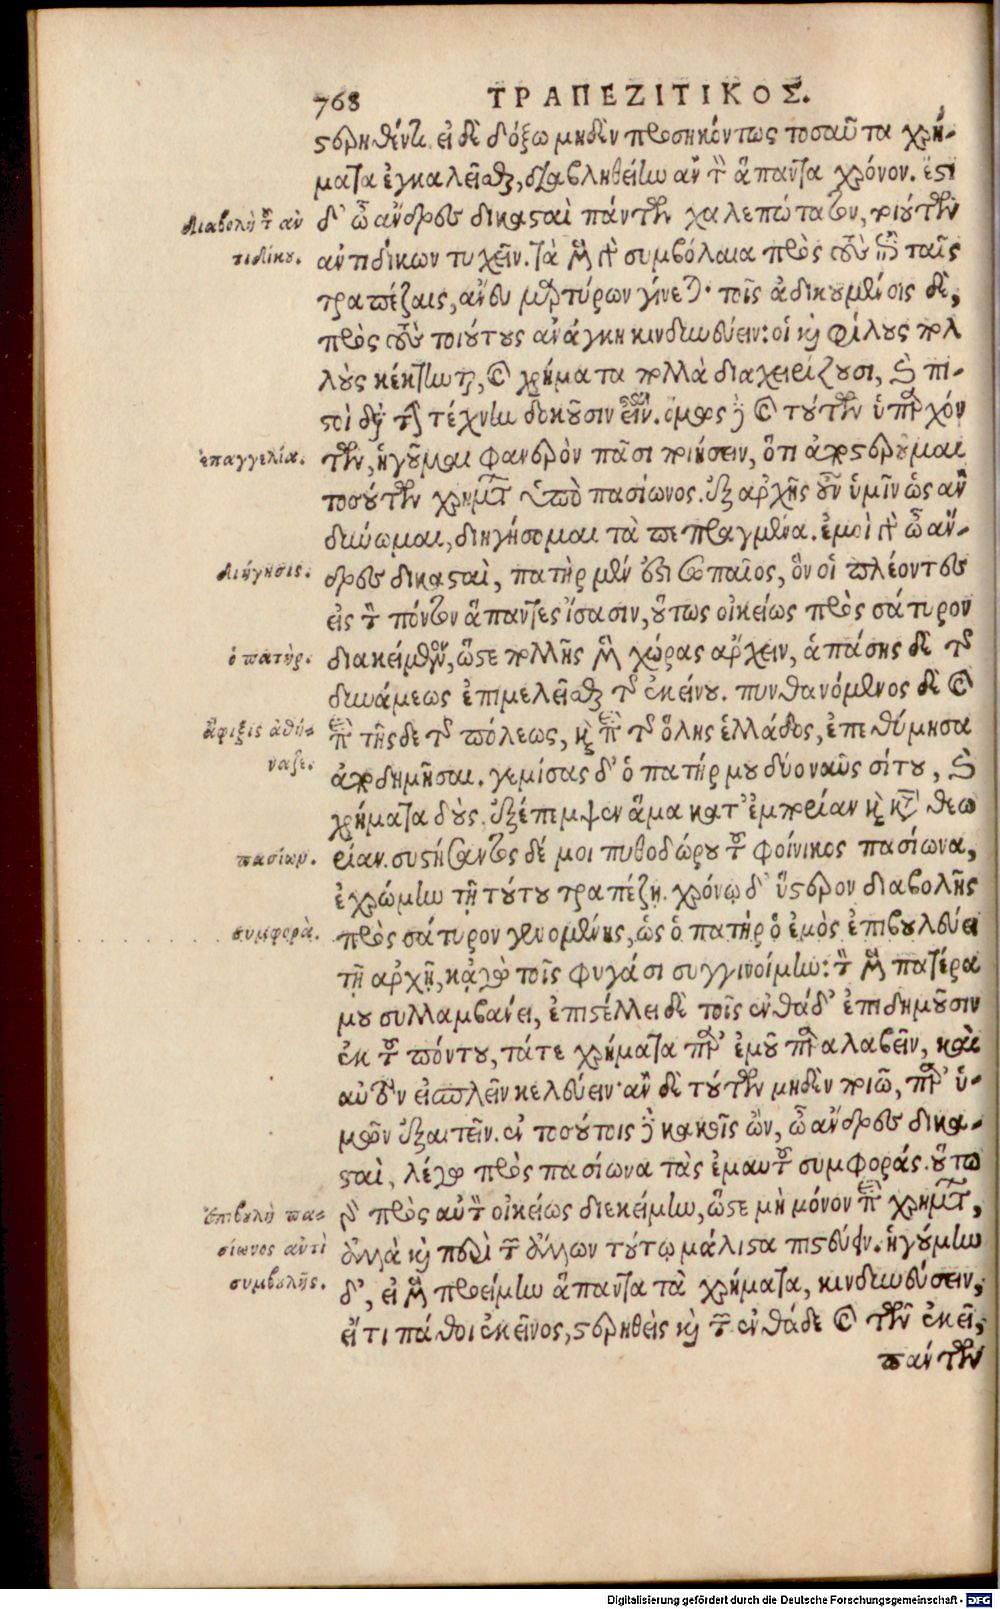 768 ΤΡΑΠΕΖΙΤΙΚΟΣ.
στερηθέντι. εἰ δὲ δόξω μηδὲν προσηκόντως τοσαῦτα χρή-
ματα ἐγκαλεῖσθαι, διαβληθείην ἂν τὸν ἅπαντα χρόνον. ἔστι
διαβολὴ τοῦ ἀν
τιδίκου.
δ' ὦ ἄνδρες δικασταὶ πάντων χαλεπώτατον, τοιούτων
ἀντιδίκων τυχεῖν. τὰ μὲν γὰρ συμβόλαια πρὸς τοὺς ἐπὶ ταῖς
τραπέζαις, ἄνευ μαρτύρων γίνεται· τοῖς ἀδικουμένοις δὲ,
πρὸς τοὺς τοιούτους ἀνάγκη κινδυνεύειν: οἳ καὶ φίλους πολ
λοὺς κέκτηνται, καὶ χρήματα πολλὰ διαχειρίζουσι, καὶ πι-
στοὶ διὰ τὴν τέχνην δοκοῦσιν εἶναι. ὅμως δὲ καὶ τούτων ὑπαρχόν
ἐπαγγελία.
των, ἡγοῦμαι φανερὸν πᾶσι ποιήσειν, ὅτι ἀποστεροῦμαι
τοσούτων χρημάτων ὑπὸ πασίωνος. ἐξ ἀρχῆς οὖν ὑμῖν ὡς ἂν
δύνωμαι, διηγήσομαι τὰ πεπραγμένα. ἐμοὶ γὰρ ὦ ἄν-
διήγησις.
δρες δικασταὶ, πατὴρ μέν ἐστι σωπαῖος, ὃν οἱ πλέοντες
εἰς τὸν πόντον ἅπαντες ἴσασιν, οὕτως οἰκείως πρὸς σάτυρον
ὁ πατὴρ.
διακείμενον, ὥστε πολλῆς μὲν χώρας ἄρχειν, ἁπάσης δὲ τῆς
δυνάμεως ἐπιμελεῖσθαι τῆς ἐκείνου. πυνθανόμενος δὲ καὶ
ἄφιξις ἀθή-
ναζε.
περὶ τῆσδε τῆς πόλεως, καὶ περὶ τῆς ὅλης ἑλλάδος, ἐπεθύμησα
ἀποδημῆσαι. γεμίσας δ' ὁ πατήρ μου δύο ναῦς σίτου, καὶ
χρήματα δοὺς, ἐξέπεμψεν ἅμα κατ' ἐμπορίαν καὶ κατὰ θεω
πασίων.
ρίαν. συστήσαντος δέ μοι πυθοδώρου τοῦ φοίνικος πασίωνα,
ἐχρώμην τῇ τούτου τραπέζῃ. χρόνῳ δ' ὕστερον διαβολῆς
συμφορὰ.
πρὸς σάτυρον γενομένης, ὡς ὁ πατὴρ ὁ ἐμὸς ἐπιβουλεύει
τῇ ἀρχῇ, κἀγὼ τοῖς φυγάσι συγγινοίμην: τὸν μὲν πατέρα
μου συλλαμβάνει, ἐπιστέλλει δὲ τοῖς ἐνθάδ' ἐπιδημοῦσιν
ἐκ τοῦ πόντου, τάτε χρήματα παρ' ἐμοῦ παραλαβεῖν, καὶ
αὐτὸν εἰσπλεῖν κελεύειν· ἂν δὲ τούτων μηδὲν ποιῶ, παρ' ὑ-
μῶν ἐξαιτεῖν. ἐν τοσούτοις δὲ κακοῖς ὢν, ὦ ἄνδρες δικα-
σταὶ, λέγω πρὸς πασίωνα τὰς ἐμαυτοῦ συμφοράς. οὕτω
ἐπιβουλὴ πα-
σίωνος ἀντὶ
συμβολῆς.
γὰρ πρὸς αὐτὸν οἰκείως διεκείμην, ὥστε μὴ μόνον περὶ χρημάτων,
ἀλλὰ καὶ περὶ τῶν ἄλλων τούτῳ μάλιστα πιστεύειν. ἡγούμην
δ', εἰ μὲν προείμην ἅπαντα τὰ χρήματα, κινδυνεύσειν,
εἴ τι πάθοι ἐκεῖνος, στερηθεὶς καὶ τῶν ἐνθάδε καὶ τῶν ἐκεῖ,
πάντων